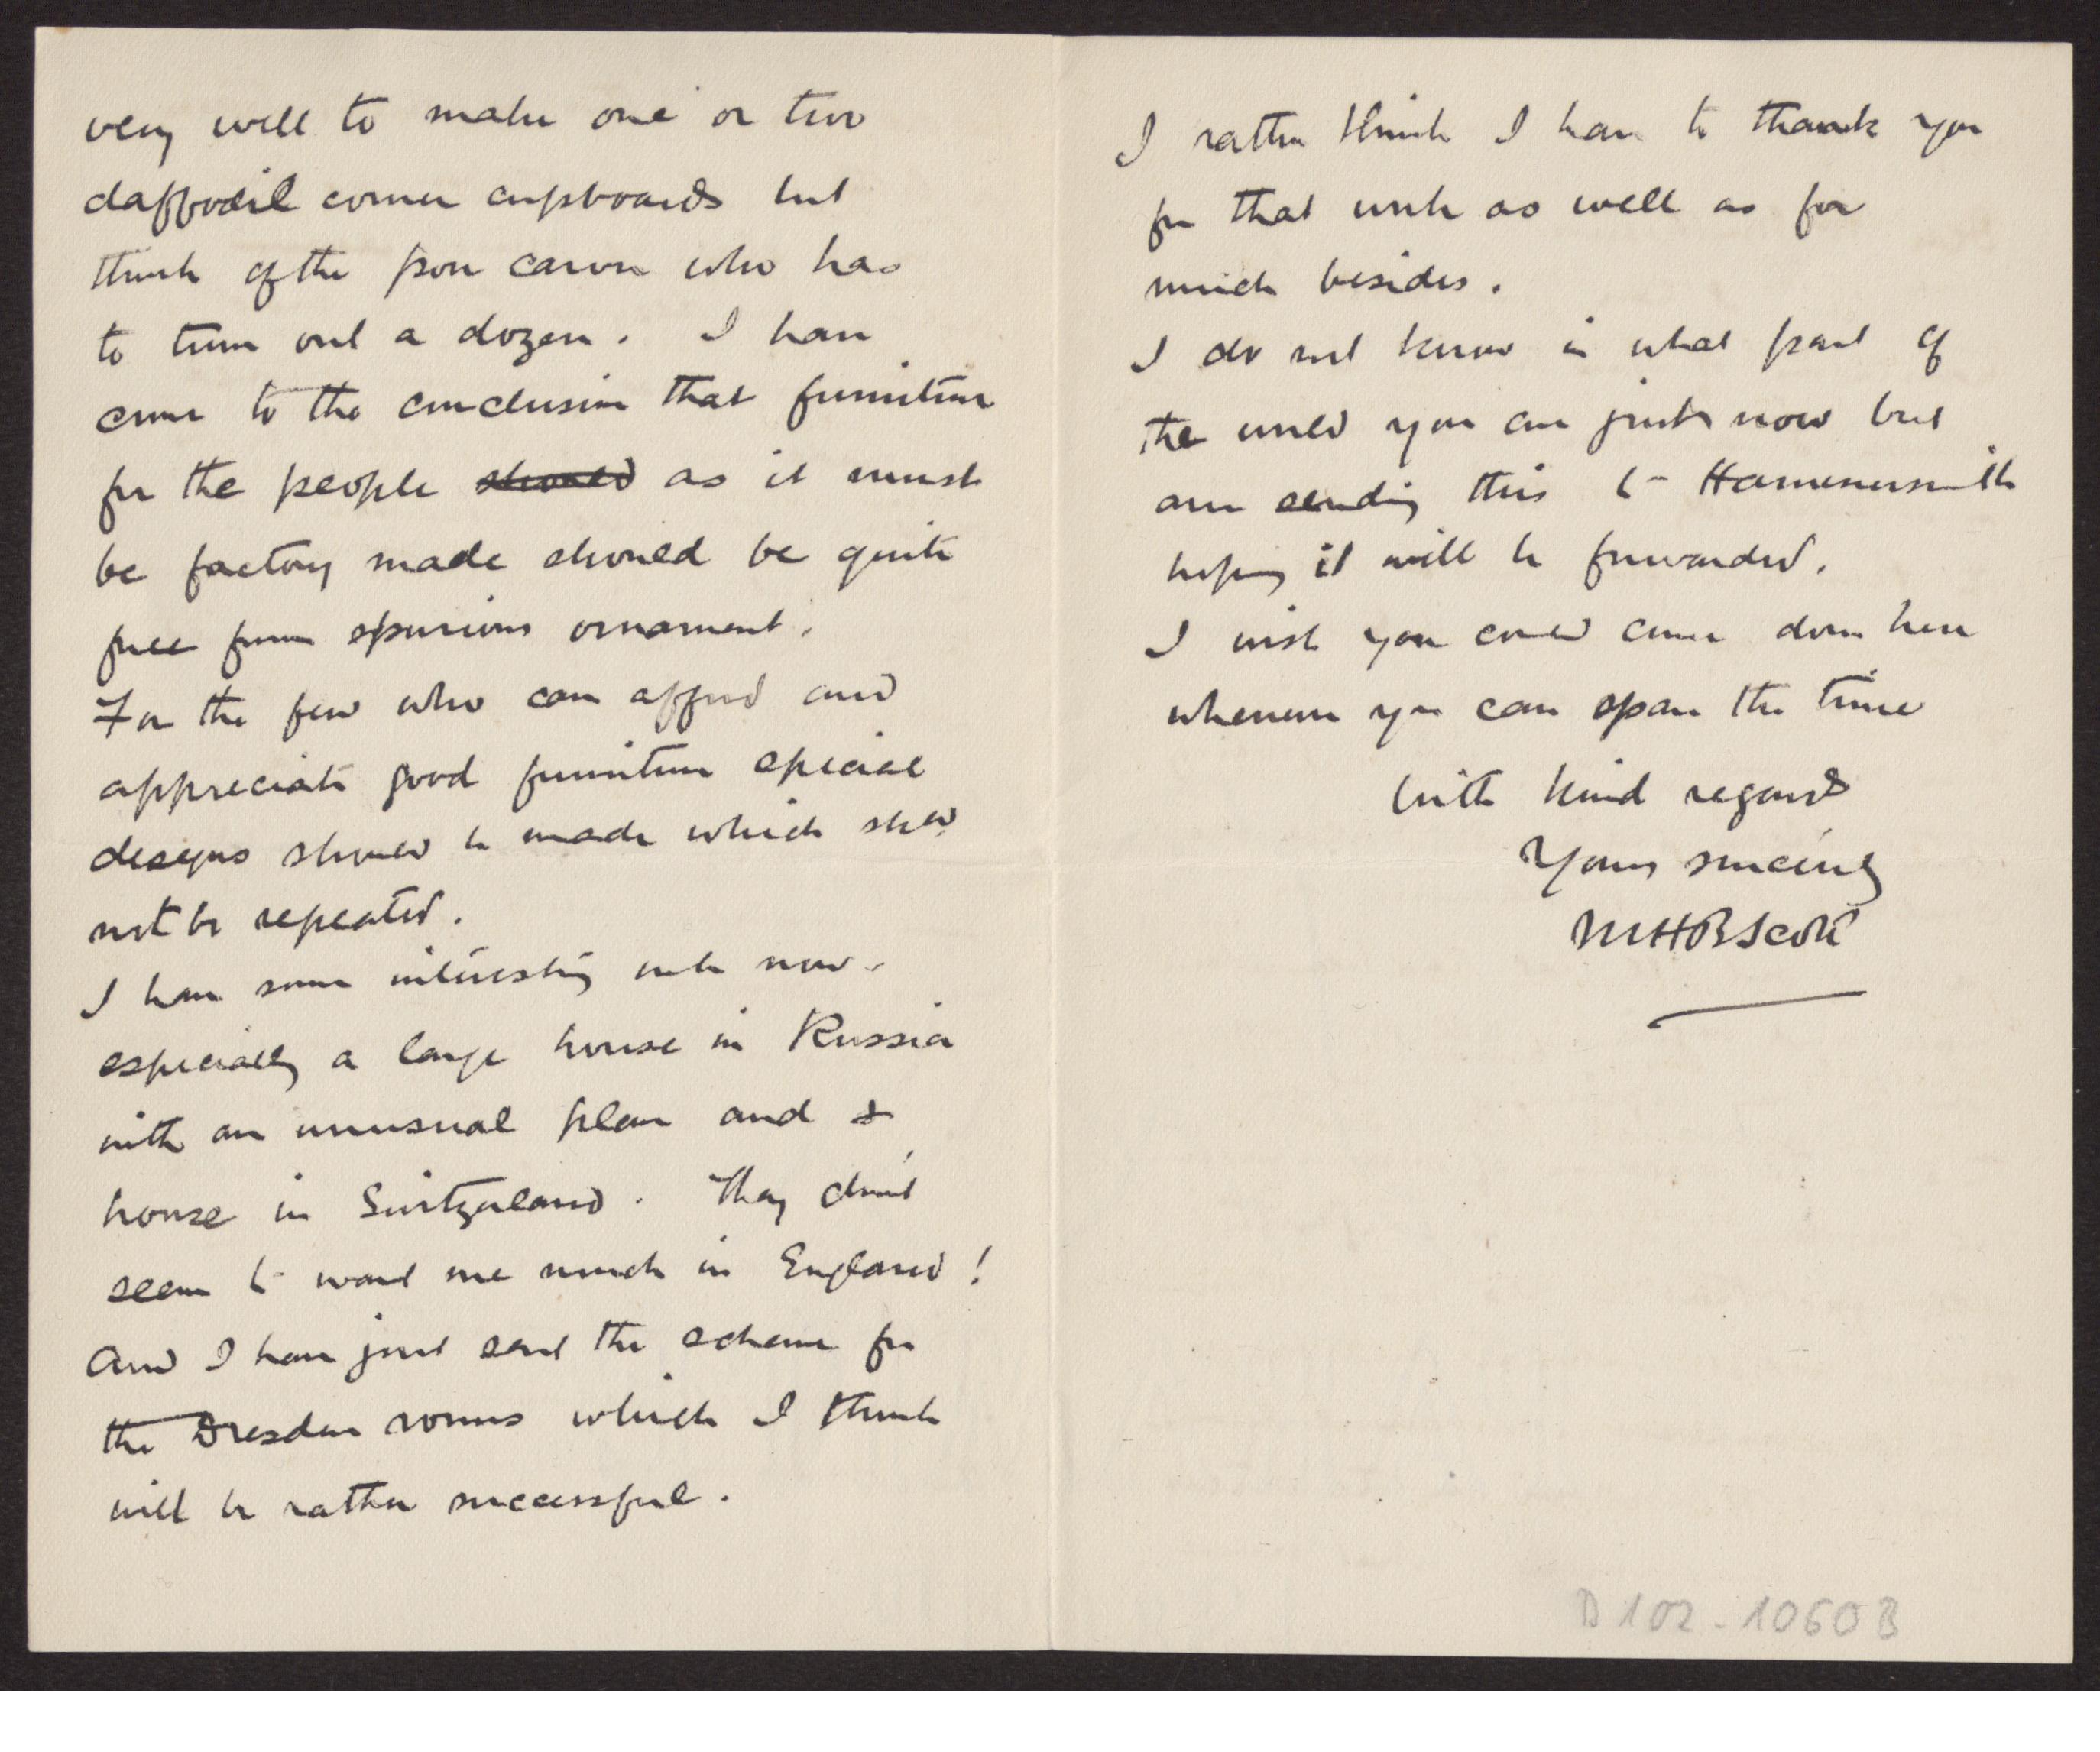 very well to make one or two
daffodil corner cupboards but
think of the poor carver who has
to turn out a dozen. I have
come to the conclusion that furniture
for the people should as it must
be factory made should be quite
free from spurious ornament.
For the few who can afford and
appreciate good furniture special
designs should be made which shd
not be repeated.
I have some interesting work now -
especially a large house in Russia
with an unusual plan and a
house in Switzerland. They don't
seem to want me much in England!
And I have just sent the scheme for
the Dresden rooms which I think
will be rather successful.
I rather think I have to thank you
for that work as well as for
much besides.
I do not know in what part of
the world you are just now but
am sending this to Hammersmith
hoping it will be forwarded.
I wish you could come down here
whenever you can spare the time
With kind regards
Yours sincerely
MHBScott
D 102-1060B